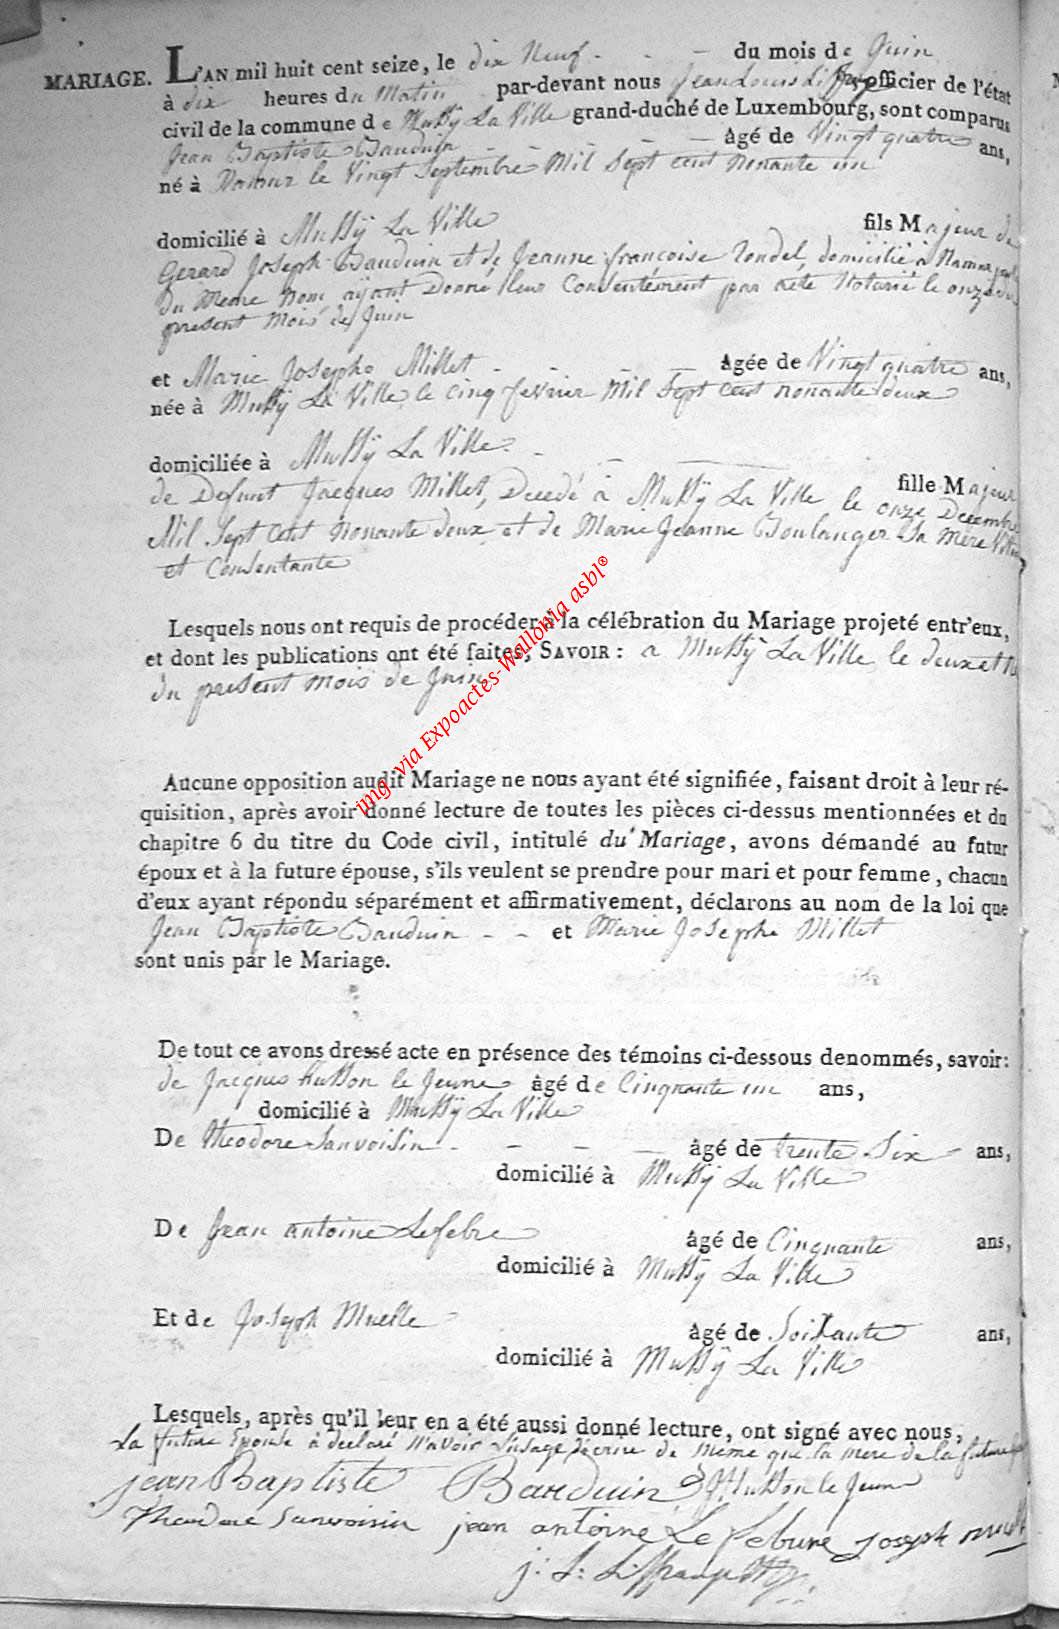 MARIAGE. L'AN mil huit cent seize, le dix Neuf du mois de Juin
à dix heures du Matin par-devant nous Jean Louis officier de l'état
civil de la commune de Mussÿ La Ville grand-duché de Luxembourg, sont comparus
Jean Baptiste Bauduin âgé de Vingt quatre ans,
né à Namur le Vingt Septembre Mil Sept cent Nonante un
domicilié à Mussÿ La Ville fils Majeur de
Gerard Joseph Bauduin et de Jeanne francoise Rondel, domicilié à Namur
Du Meme Nom, ayant Donné leur Consentement par acte Notarié le onze du
present Mois de Juin
et Marie Josephe Millet Agée de Vingt quatre ans,
née à Mussÿ La Ville le cinq fevrier Mil Sept cent nonante deux
domiciliée à Mussÿ La Ville.
fille Majeur
de Defunt Jacques Millet, Decedé à Mussÿ La Ville le onze Decembre
Mil Sept cent Nonante deux et de Marie Jeanne Boulanger Sa Mere
et Consentante
Lesquels nous ont requis de procéder à la célébration du Mariage projeté entr'eux,
et dont les publications ont été faites, SAVOIR : a Mussÿ La Ville le deux et
du present Mois de Juin
img via Expoactes-Wallonia asbl®
Aucune opposition audit Mariage ne nous ayant été signifiée, faisant droit à leur ré-
quisition, après avoir donné lecture de toutes les pièces ci-dessus mentionnées et du
chapitre 6 du titre du Code civil, intitulé du Mariage, avons démandé au futur
époux et à la future épouse, s'ils veulent se prendre pour mari et pour femme, chacun
d'eux ayant répondu séparément et affirmativement, déclarons au nom de la loi que
Jean Baptiste Bauduin et Marie Josephe Millet
sont unis par le Mariage.
De tout ce avons dressé acte en présence des témoins ci-dessous denommés, savoir:
de Jacques Husson le Jeune âgé de Cinquante un ans,
domicilié à Mussÿ La Ville
De Theodore Sanvoisin âgé de trente Six ans,
domicilié à Mussÿ La Ville
De Jean antoine Lefebre âgé de Cinquante ans,
domicilié à Mussÿ La Ville
Et de Joseph Muelle âgé de Soixante ans,
domicilié à Mussÿ La Ville
Lesquels, après qu'il leur en a été aussi donné lecture, ont signé avec nous,
La future Epouse à declaré N'avoir L'usage d'ecrire de Meme que la mere de la future
jean Baptiste Bauduin J. Husson le Jeune
Theodore Sanvoisin jean antoine Le febure Joseph
j: L: